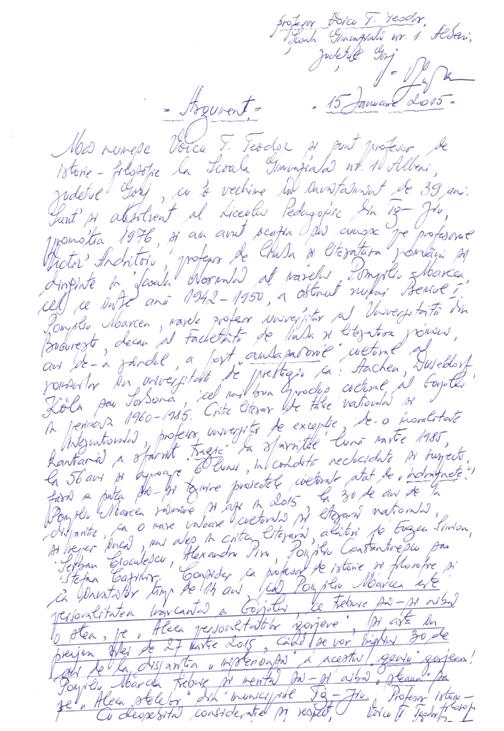 profesor Voicu T. Teodor,
Școala Gimnazială nr. 1 Alberi,
județul Gorj
- Argument, -
- 15 Ianuarie 2015 -
Mă numesc Voicu T. Teodor și sunt profesor de
istorie - filosofie la Școala Gimnazială nr. 1 Alberi,
județul Gorj, cu o vechime în învățământ de 39 ani.
Sunt și absolvent al Liceului Pedagogic din Tg-Jiu,
promoția 1976, și am avut să-l cunosc pe profesorul
Victor Andrițoiu, profesor de limba și literatura română și
diriginte în Școala Normală al marelui Pompiliu Marcea,
cel ce între anii 1942-1950, a obținut numai Premiul I.
Pompiliu Marcea, marele profesor universitar al Universității din
București, decan al facultății de limba și literatura română,
ani de-a rândul, a fost "ambasadorul" cultural al
românilor în universități de prestigiu ca: Aachen, Düseldorf,
Köln sau Sorbona, cel mai bun produs cultural al Gorjului
în perioada 1960-1985. Critic literar de talie națională și
internațională, profesor universitar de excepție, de-o moralitate
kantiană a sfârșit tragic la sfârșitul lunii martie 1985,
la 56 ani și luni, în condiții neelucidate și suspecte,
fără a putea să-și termine proiectele culturale atât de "îndrăgite".
Pompiliu Marcea rămâne și azi în 2015 la 30 de ani de la
dispariție, ca o mare valoare culturală și literară națională,
și reper mai ales în critica literară, alături de Eugen Simion,
Șerban Cioculescu, Alexandru Piru, Pompiliu Constantinescu sau
Ștefan Cazimir. Consider ca profesor de istorie și filosofie și
ca învățător timp de 14 ani, că Pompiliu Marcea este
personalitatea marcantă a Gorjului, ce trebuie să-și aibă
o stea, pe "Aleea personalităților gorjene", și asta în
preajma zilei de 27 martie 2015, când se vor împlini 30 de
ani de la dispariția a acestui geniu gorjean!
Pompiliu Marcea trebuie și merită să-și aibă "steaua" sa
pe "Aleea stelelor" din municipiul Tg-Jiu, Profesor istorie-
Cu deosebită considerație și respect, Voicu T. Teodor filosofie